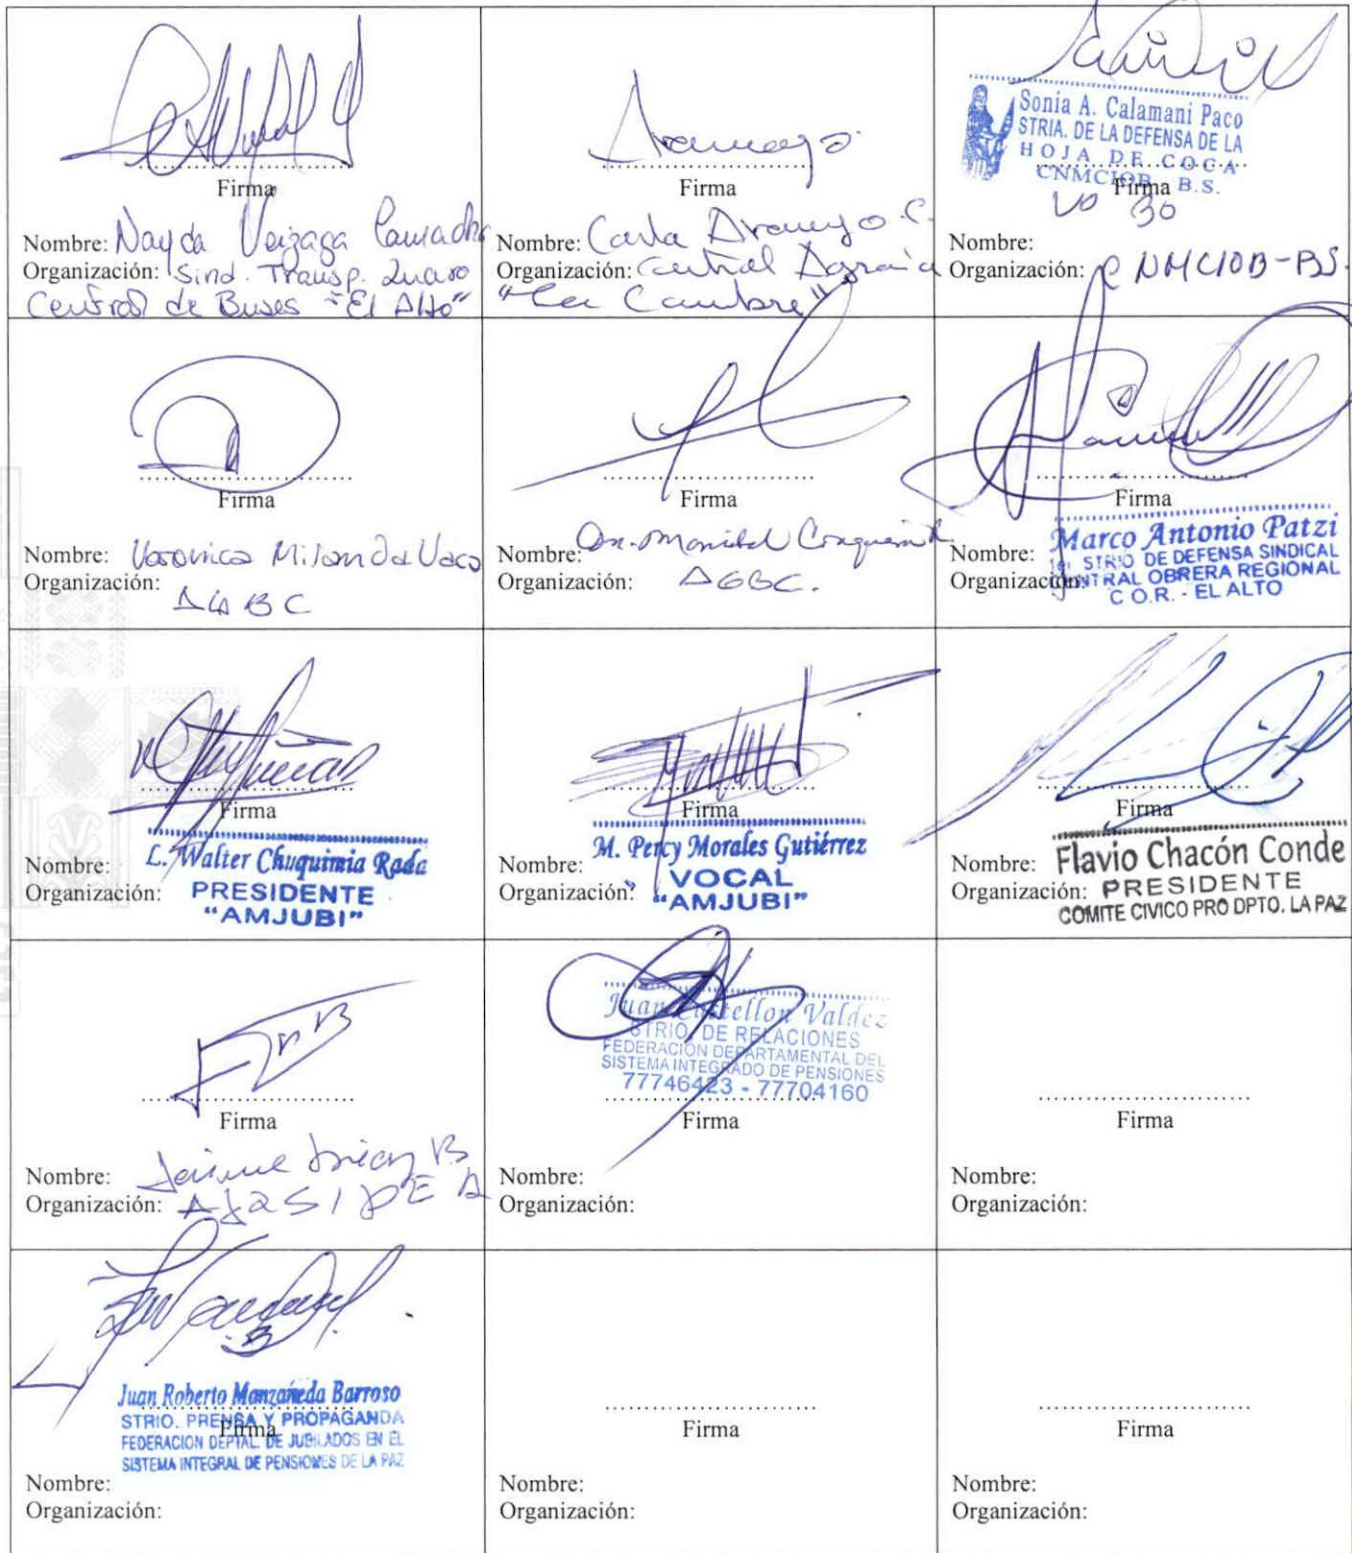 Firma
Nombre: Nayda Veizaga Camacho
Organización: Sind. Transp. Quaro
Central de Buses "El Alto"
Aramayo
Firma
Nombre: Carla Aramayo C.
Organización: Central Agraria
"La Cumbre"
Sonia A. Calamani Paco
STRIA. DE LA DEFENSA DE LA
HOJA DE COCA
CNMCIOB B.S.
Firma
Nombre:
Organización: CNMCIOB-BS.
Firma
Nombre: Veronica Miranda Vaca
Organización:
AGBC
Firma
Nombre:
Organización: AGBC.
Firma
Marco Antonio Patzi
STRIO DE DEFENSA SINDICAL
CENTRAL OBRERA REGIONAL
C.O.R. - EL ALTO
Nombre:
Organización:
Firma
L. Walter Chuquimia Rada
PRESIDENTE
"AMJUBI"
Nombre:
Organización:
Firma
M. Percy Morales Gutiérrez
VOCAL
"AMJUBI"
Nombre:
Organización:
Firma
Flavio Chacón Conde
PRESIDENTE
COMITE CIVICO PRO DPTO. LA PAZ
Nombre:
Organización:
Firma
Nombre: Jaime B
Organización:
Juan Castellon Valdez
STRIO. DE RELACIONES
FEDERACIÓN DEPARTAMENTAL DEL
SISTEMA INTEGRADO DE PENSIONES
77746423 - 77704160
Firma
Nombre:
Organización:
Firma
Nombre:
Organización:
Juan Roberto Manzaneda Barroso
STRIO. PRENSA Y PROPAGANDA
FEDERACION DEPTAL. DE JUBILADOS EN EL
SISTEMA INTEGRAL DE PENSIONES DE LA PAZ
Firma
Nombre:
Organización:
Firma
Nombre:
Organización:
Firma
Nombre:
Organización: